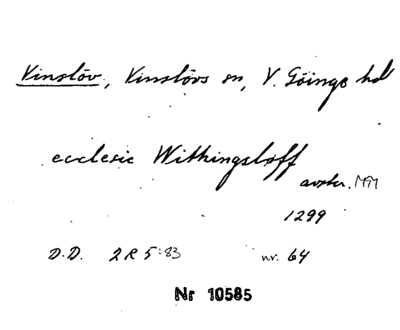 Vinslöv, Vinslövs sn, V. Göinge hd
ecclesie Withingsløff
avskr. MM
1299
D.D. 2 R 5:83 nr. 64
Nr 10585